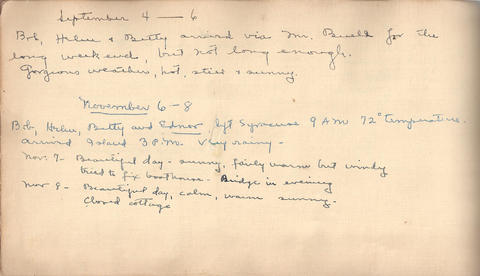 September 4 — 6
Bob, Helen & Betty arrived via Mr. Buell for the
long week end, but not long enough.
Gorgeous weather, hot, still & sunny.
November 6-8
Bob, Helen, Betty and Ednor, left Syracuse 9 A.M. 72° temperature.
arrived Island 3 P.M. Very rainy -
Nov. 7 - Beautiful day - sunny, fairly warm but windy
tried to fix boathouse. Bridge in evening
Nov 8 - Beautiful day, calm, warm sunny.
Closed cottage